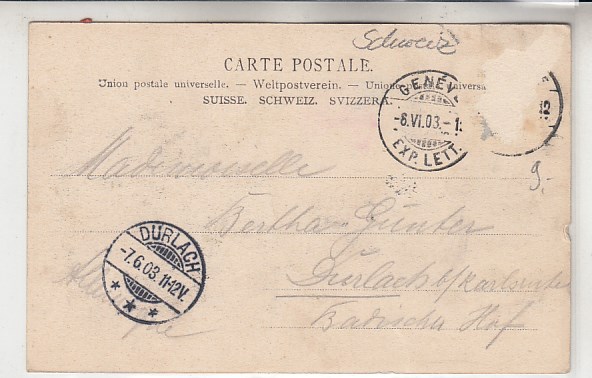 Schweiz
CARTE POSTALE.
Union postale universelle. — Weltpostverein. — Unione postale universa
SUISSE. SCHWEIZ. SVIZZERA.
GENÈV
-6.VI.03.-1
EXP. LETT.
9.-
Mademoiselle
Bertha Günter
Durlach b/Karlsruhe
Badischer Hof
Allemagne
DURLACH
-7.6.03.11-12V.